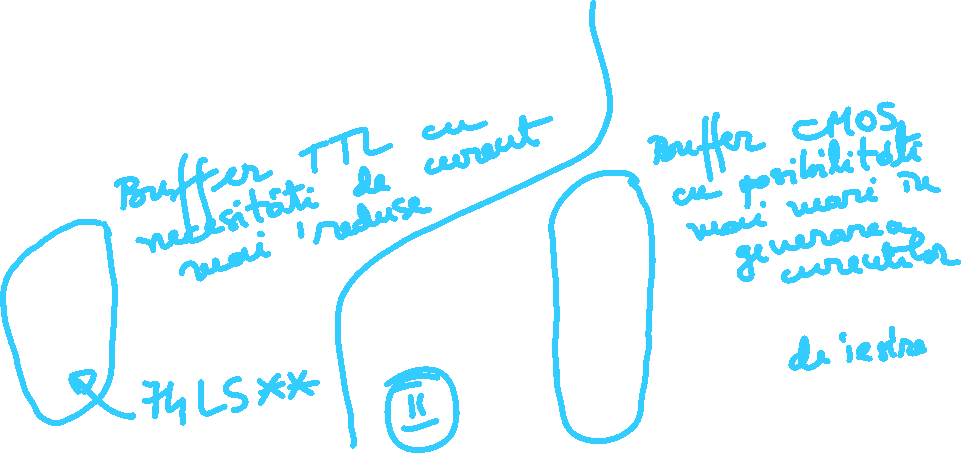 Buffer TTL cu
necesități de curent
mai reduse
74LS**
II
Buffer CMOS
cu posibilități
mai mari în
generarea
curenților
de ieșire